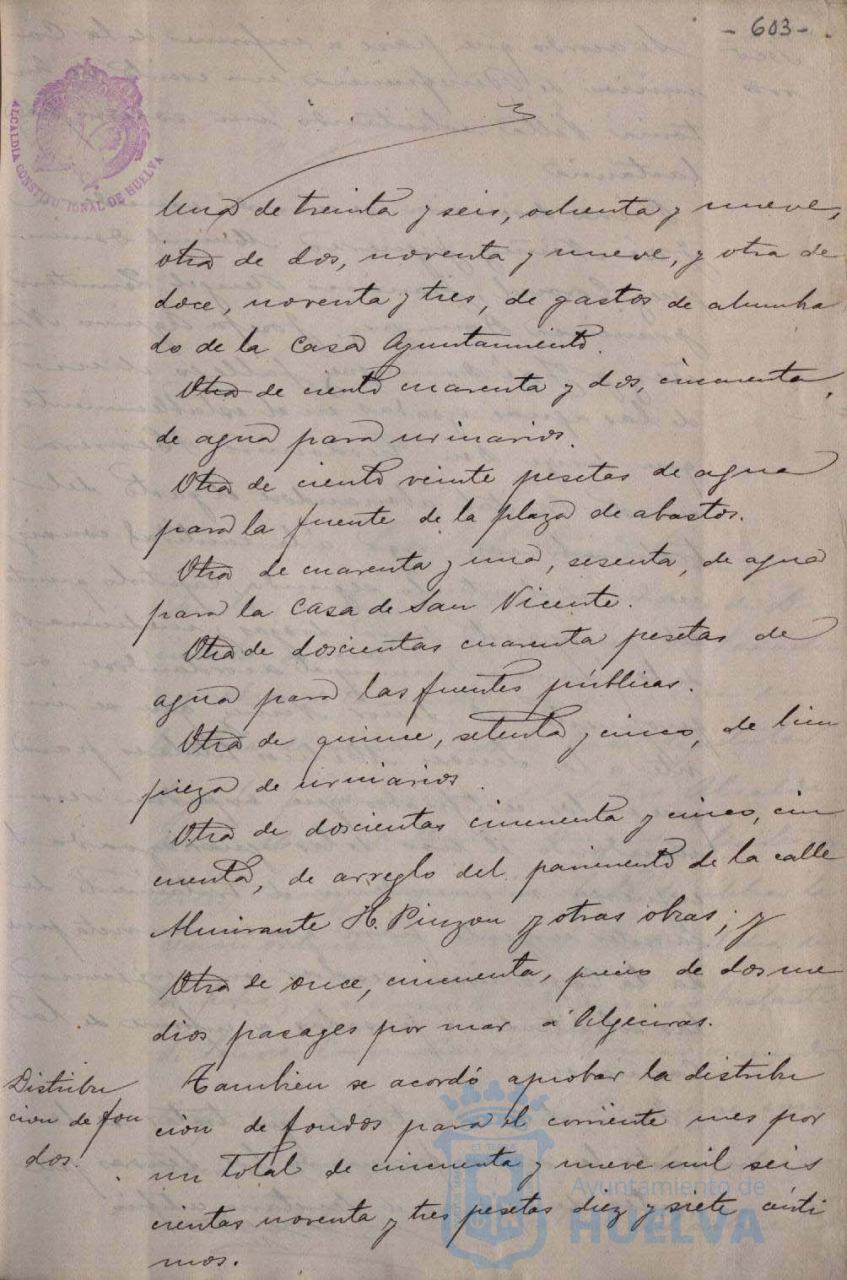 - 603 -
ALCALDIA CONSTITUCIONAL DE HUELVA
Una de treinta y seis, ochenta y nueve,
otra de dos, noventa y nueve, y otra de
doce, noventa y tres, de gastos de alumbra
do de la Casa Ayuntamiento.
Otra de ciento cuarenta y dos, cincuenta,
de agua para urinarios.
Otra de ciento veinte pesetas de agua
para la fuente de la plaza de abastos.
Otra de cuarenta y una, sesenta, de agua
para la Casa de San Vicente.
Otra de doscientas cuarenta pesetas de
agua para las fuentes públicas.
Otra de quince, setenta y cinco, de lim
pieza de urinarios.
Otra de doscientas cincuenta y cinco, cin
cuenta, de arreglo del pavimento de la calle
Almirante H. Pinzon y otras obras; y
Otra de once, cincuenta, precio de dos me
dios pasages por mar á Algeciras.
Distribu
cion de fon
dos.
Tambien se acordó aprobar la distribu
ción de fondos para el corriente mes por
un total de cincuenta y nueve mil seis
cientas noventa y tres pesetas diez y siete cénti
mos.
Ayuntamiento de
HUELVA